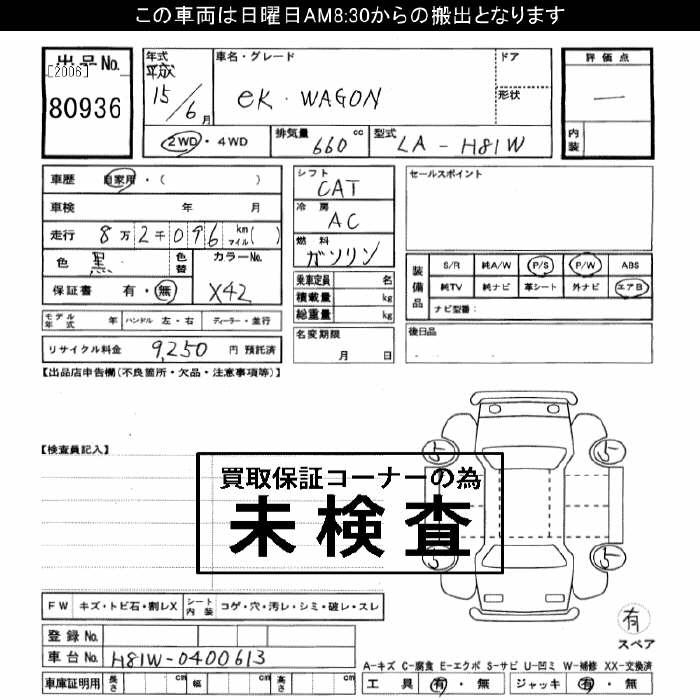 この車両は日曜日AM8:30からの搬出となります
出品No.
[2006]
80936
年式
平成
15/6月
車名・グレード
eK・WAGON
ドア
形状
評価点
―
内装
2WD・4WD
排気量 660 cc
型式 LA-H81W
車歴 自家用・( )
車検 年 月
走行 8万2千096 km マイル( )
色 黒 色替
カラーNo. X42
保証書 有・無
モデル年式 年 ハンドル 左・右 ディーラー・並行
リサイクル料金 9,250 円 預託済
シフト
CAT
冷房
AC
燃料
ガソリン
乗車定員 名
積載量 kg
総重量 kg
名変期限
月 日
セールスポイント
装備品
S/R 純A/W P/S P/W ABS
純TV 純ナビ 革シート 外ナビ エアB
ナビ型番:
後日品
【出品店申告欄(不良箇所・欠品・注意事項等)】
【検査員記入】
買取保証コーナーの為
未検査
5 5
5 5
有
スペア
FW キズ・トビ石・割レX シート内装 コゲ・穴・汚レ・シミ・破レ・スレ
登録No.
車台No. H81W-0400613
車庫証明用 長さ cm 幅 cm 高さ cm
A-キズ C-腐食 E-エクボ S-サビ U-凹ミ W-補修 XX-交換済
工具 有・無 ジャッキ 有・無